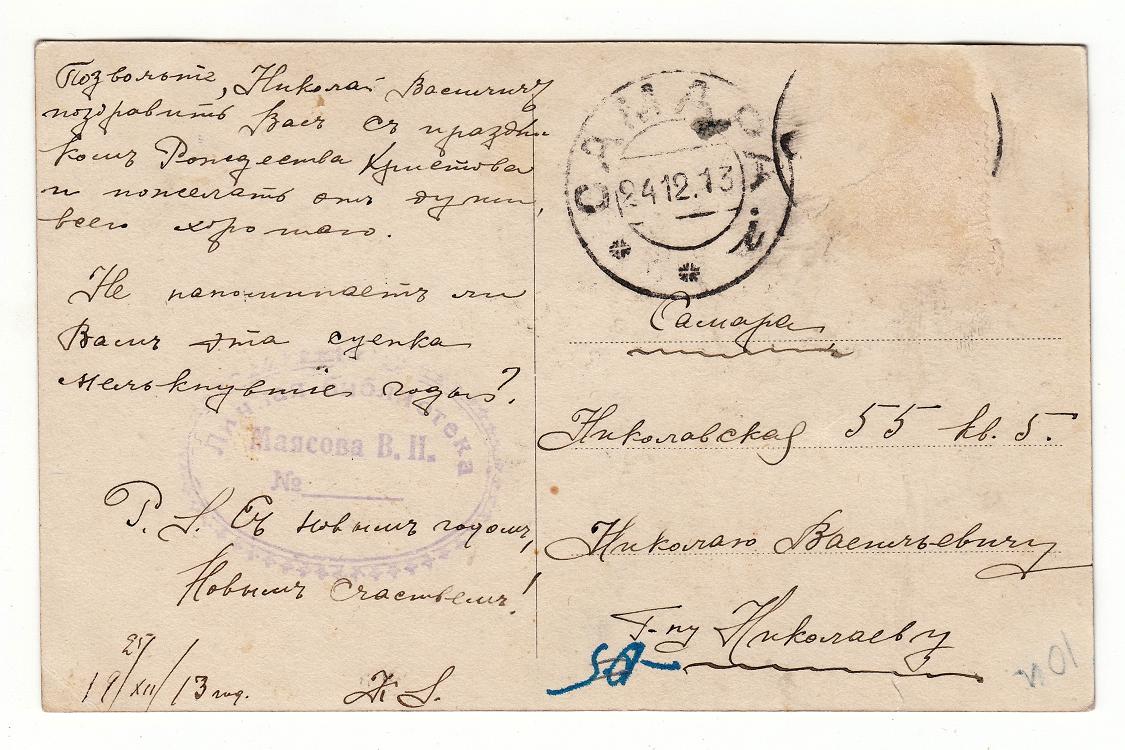 Позвольте, Николай Василичъ
поздравить Васъ съ праздни-
комъ Рождества Христова
и пожелать отъ души
всего хорошаго.
Не напоминаетъ ли
Вамъ эта сценка
мелькнувшіе годы?
P. S. Съ новымъ годомъ,
Новымъ счастьемъ!
25/XII 1913 год.
САМАРА
24 12.13
Самара
Николаевская 55 кв. 5.
Николаю Васильевичу
Г-ну Николаеву
Личная библиотека
Маясова В. Н.
№
50